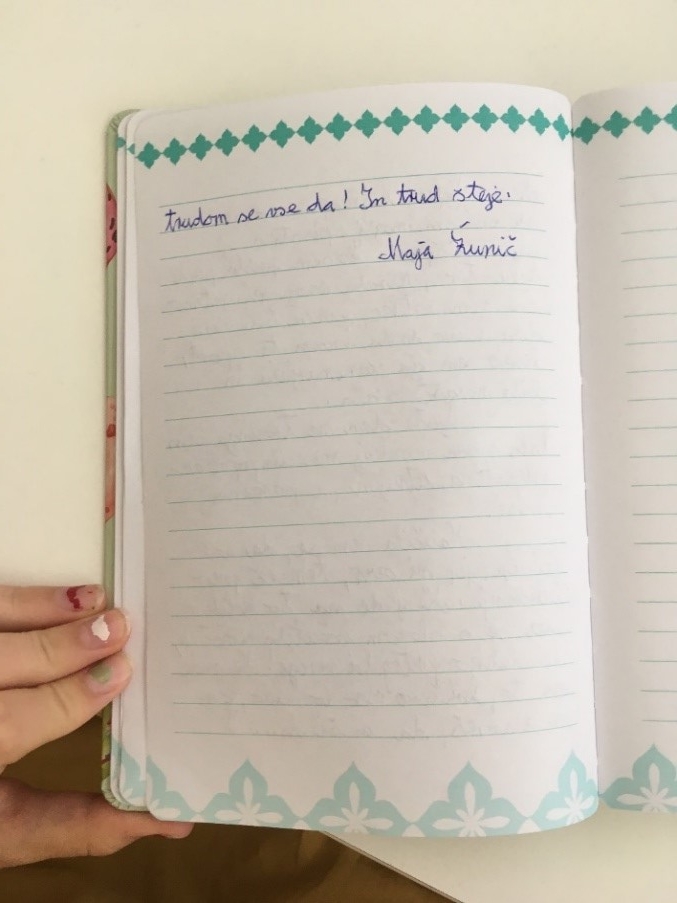 trudom se vse da! In trud šteje.
Maja Žunič